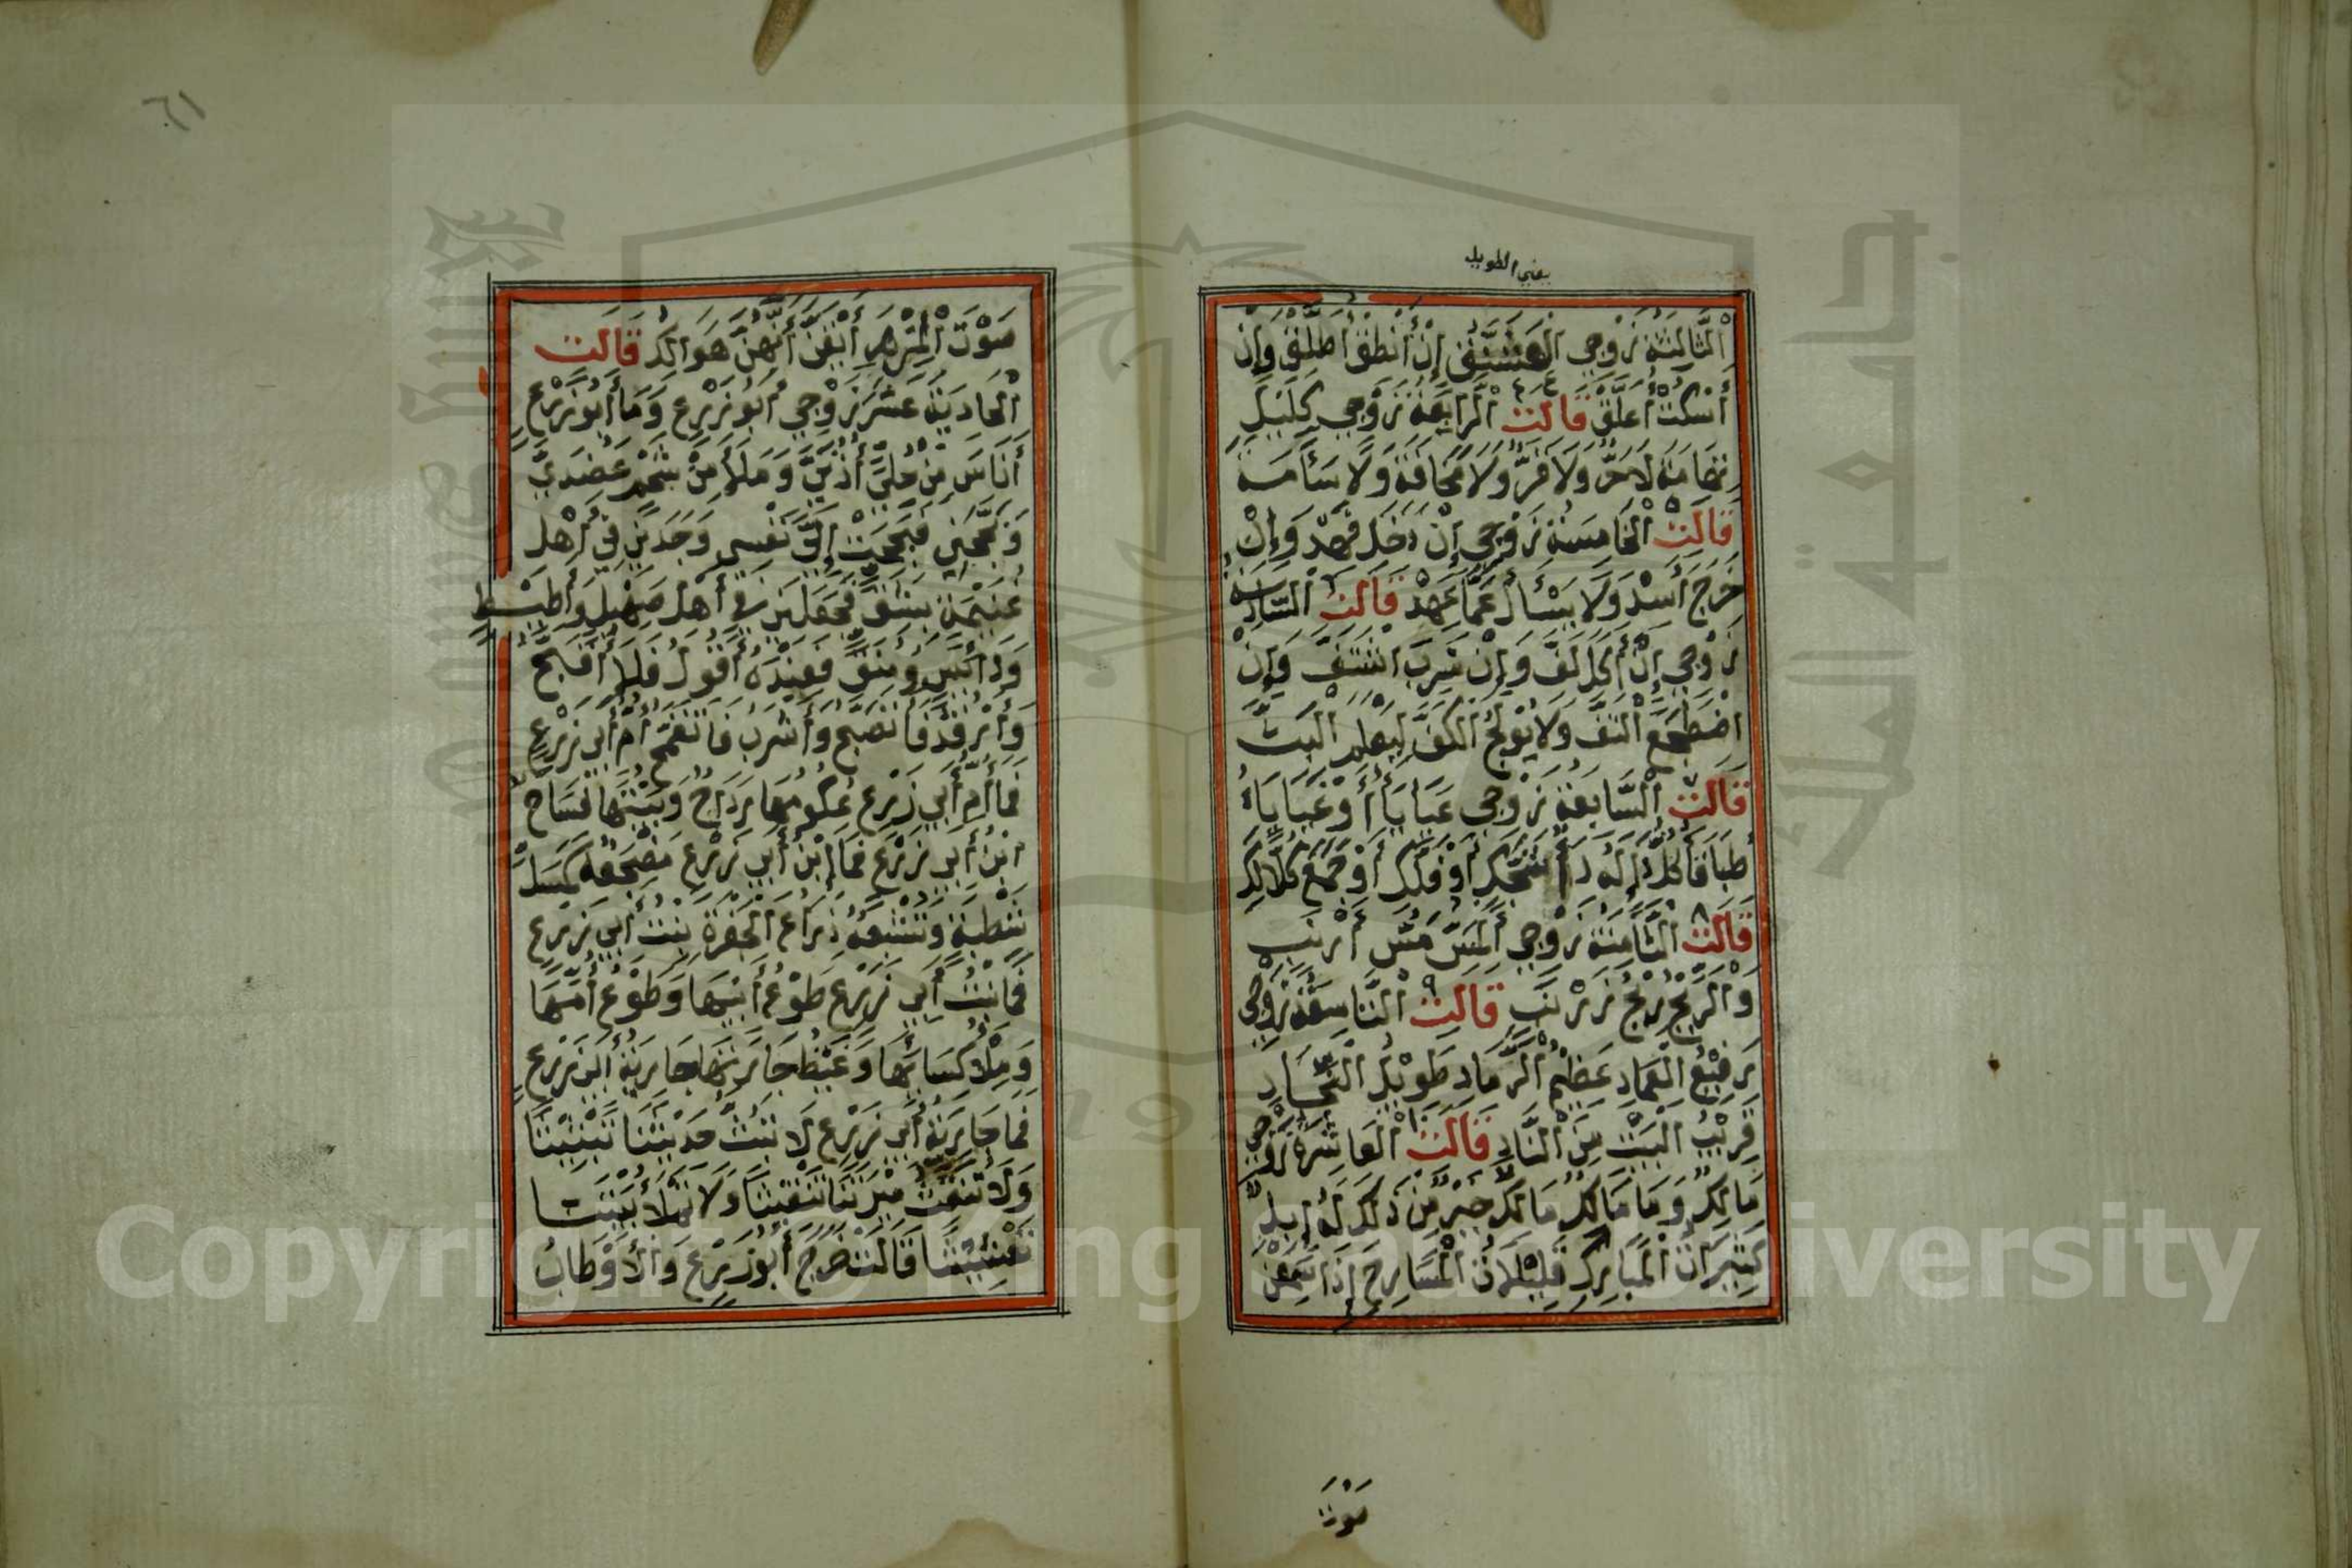 يعني الطويل
اَلثَّالِثَةُ زَوْجِي الْعَشَنَّقُ إِنْ أَنْطِقْ أُطَلَّقْ وَإِنْ
أَسْكُتْ أُعَلَّقْ قَالَتْ ٤ اَلرَّابِعَةُ زَوْجِي كَلَيْلِ
تِهَامَةَ لَا حَرٌّ وَلَا قَرٌّ وَلَا مَخَافَةَ وَلَا سَآمَةَ
قَالَتْ ٥ اَلْخَامِسَةُ زَوْجِي إِنْ دَخَلَ فَهِدَ وَإِنْ
خَرَجَ أَسِدَ وَلَا يَسْأَلُ عَمَّا عَهِدَ قَالَتْ ٦ السَّادِسَةُ
زَوْجِي إِنْ أَكَلَ لَفَّ وَإِنْ شَرِبَ اشْتَفَّ وَإِنْ
اضْطَجَعَ الْتَفَّ وَلَا يُوْلِجُ الْكَفَّ لِيَعْلَمَ الْبَثَّ
قَالَتْ ٧ اَلسَّابِعَةُ زَوْجِي عَيَايَاءُ أَوْ غَيَايَاءُ
طَبَاقَاءُ كُلُّ دَاءٍ لَهُ دَاءٌ شَجَّكِ أَوْ فَلَّكِ أَوْ جَمَعَ كُلًّا لَكِ
قَالَتْ ٨ اَلثَّامِنَةُ زَوْجِي اَلْمَسُّ مَسُّ أَرْنَبٍ
وَالرِّيْحُ رِيْحُ زَرْنَبٍ قَالَتْ ٩ اَلتَّاسِعَةُ زَوْجِي
رَفِيْعُ الْعِمَادِ عَظِيْمُ الرَّمَادِ طَوِيْلُ النِّجَادِ
قَرِيْبُ الْبَيْتِ مِنَ النَّادِ قَالَتْ ١٠ اَلْعَاشِرَةُ زَوْجِي
مَالِكٌ وَمَا مَالِكٌ مَالِكٌ خَيْرٌ مِنْ ذَلِكَ لَهُ إِبِلٌ
كَثِيْرَاتُ الْمَبَارِكِ قَلِيْلَاتُ الْمَسَارِحِ إِذَا سَمِعْنَ
صَوْتَ
٦١
صَوْتَ الْمِزْهَرِ أَيْقَنَّ أَنَّهُنَّ هَوَالِكُ قَالَتْ
اَلْحَادِيَةَ عَشَرَ زَوْجِي أَبُو زَرْعٍ وَمَا أَبُو زَرْعٍ
أَنَاسَ مِنْ حُلِيٍّ أُذُنَيَّ وَمَلَأَ مِنْ شَحْمٍ عَضُدَيَّ
وَبَجَّحَنِي فَبَجَحَتْ إِلَيَّ نَفْسِي وَجَدَنِي فِي أَهْلِ
غُنَيْمَةٍ بِشِقٍّ فَجَعَلَنِي فِي أَهْلِ صَهِيْلٍ وَأَطِيْطٍ
وَدَائِسٍ وَمُنَقٍّ فَعِنْدَهُ أَقُولُ فَلَا أُقَبَّحُ
وَأَرْقُدُ فَأَتَصَبَّحُ وَأَشْرَبُ فَأَتَقَمَّحُ أُمُّ أَبِي زَرْعٍ
فَمَا أُمُّ أَبِي زَرْعٍ عُكُومُهَا رَدَاحٌ وَبَيْتُهَا فَسَاحٌ
ابْنُ أَبِي زَرْعٍ فَمَا ابْنُ أَبِي زَرْعٍ مَضْجَعُهُ كَمَسَلِّ
شَطْبَةٍ وَتُشْبِعُهُ ذِرَاعُ الْجَفْرَةِ بِنْتُ أَبِي زَرْعٍ
فَمَا بِنْتُ أَبِي زَرْعٍ طَوْعُ أَبِيْهَا وَطَوْعُ أُمِّهَا
وَمِلْأُ كِسَائِهَا وَغَيْظُ جَارَتِهَا جَارِيَةُ أَبِي زَرْعٍ
فَمَا جَارِيَةُ أَبِي زَرْعٍ لَا تَبُثُّ حَدِيْثَنَا تَبْثِيْثًا
وَلَا تُنَقِّثُ مِيْرَتَنَا تَنْقِيْثًا وَلَا تَمْلَأُ بَيْتَنَا
تَعْشِيْشًا قَالَتْ خَرَجَ أَبُو زَرْعٍ وَالْأَوْطَابُ
Copyright © King Saud University